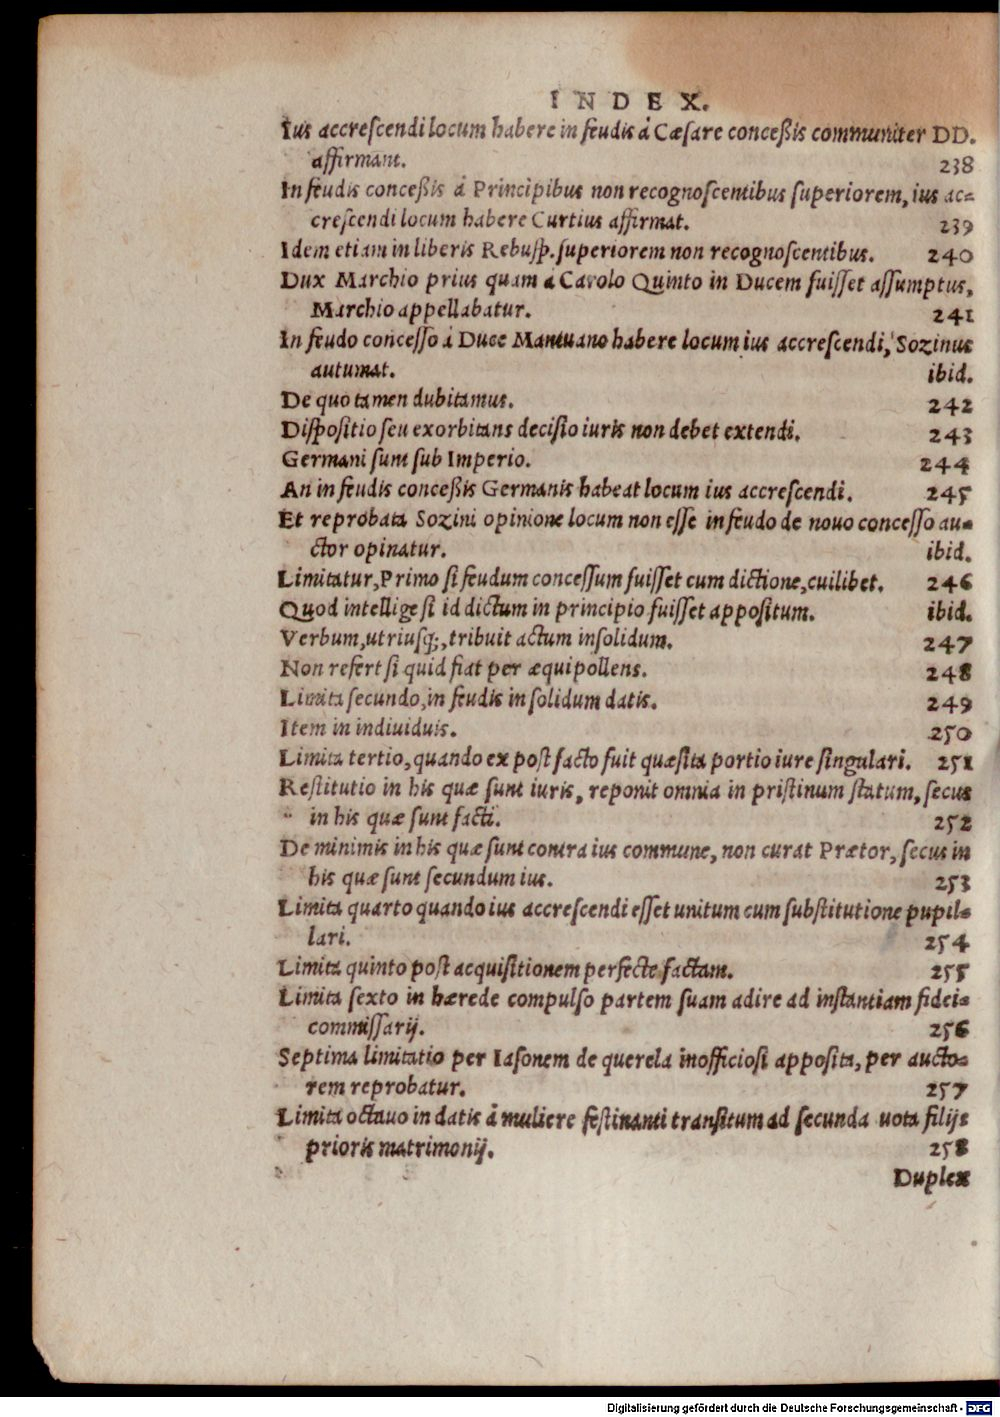 INDEX.
Ius accreſcendi locum habere in feudis à Cæſare conceßis communiter DD.
affirmant. 238
In feudis conceßis à Principibus non recognoſcentibus ſuperiorem, ius ac-
creſcendi locum habere Curtius affirmat. 239
Idem etiam in liberis Rebuſp. ſuperiorem non recognoſcentibus. 240
Dux Marchio prius quam à Carolo Quinto in Ducem fuiſſet aſſumptus,
Marchio appellabatur. 241
In feudo conceſſo à Duce Mantuano habere locum ius accreſcendi, Sozinus
autumat. ibid.
De quo tamen dubitamus. 242
Diſpoſitio ſeu exorbitans deciſio iuris non debet extendi. 243
Germani ſunt ſub Imperio. 244
An in feudis conceßis Germanis habeat locum ius accreſcendi. 245
Et reprobata Sozini opinione locum non eſſe in feudo de nouo conceſſo au-
ctor opinatur. ibid.
Limitatur, Primo ſi feudum conceſſum fuiſſet cum dictione, cuilibet. 246
Quod intellige ſi id dictum in principio fuiſſet appoſitum. ibid.
Verbum, utriuſq;, tribuit actum inſolidum. 247
Non refert ſi quid fiat per æquipollens. 248
Limita ſecundo, in feudis in ſolidum datis. 249
Item in indiuiduis. 250
Limita tertio, quando ex poſt facto fuit quæſita portio iure ſingulari. 251
Reſtitutio in his quæ ſunt iuris, reponit omnia in priſtinum ſtatum, ſecus
in his quæ ſunt facti. 252
De minimis in his quæ ſunt contra ius commune, non curat Prætor, ſecus in
his quæ ſunt ſecundum ius. 253
Limita quarto quando ius accreſcendi eſſet unitum cum ſubſtitutione pupil-
lari. 254
Limita quinto poſt acquiſitionem perfecte factam. 255
Limita ſexto in hærede compulſo partem ſuam adire ad inſtantiam fidei-
commiſſarij. 256
Septima limitatio per Iaſonem de querela inofficioſi appoſita, per aucto-
rem reprobatur. 257
Limita octauo in datis à muliere feſtinanti tranſitum ad ſecunda uota filijs
prioris matrimonij. 258
Duplex
Digitalisierung gefördert durch die Deutsche Forschungsgemeinschaft - DFG